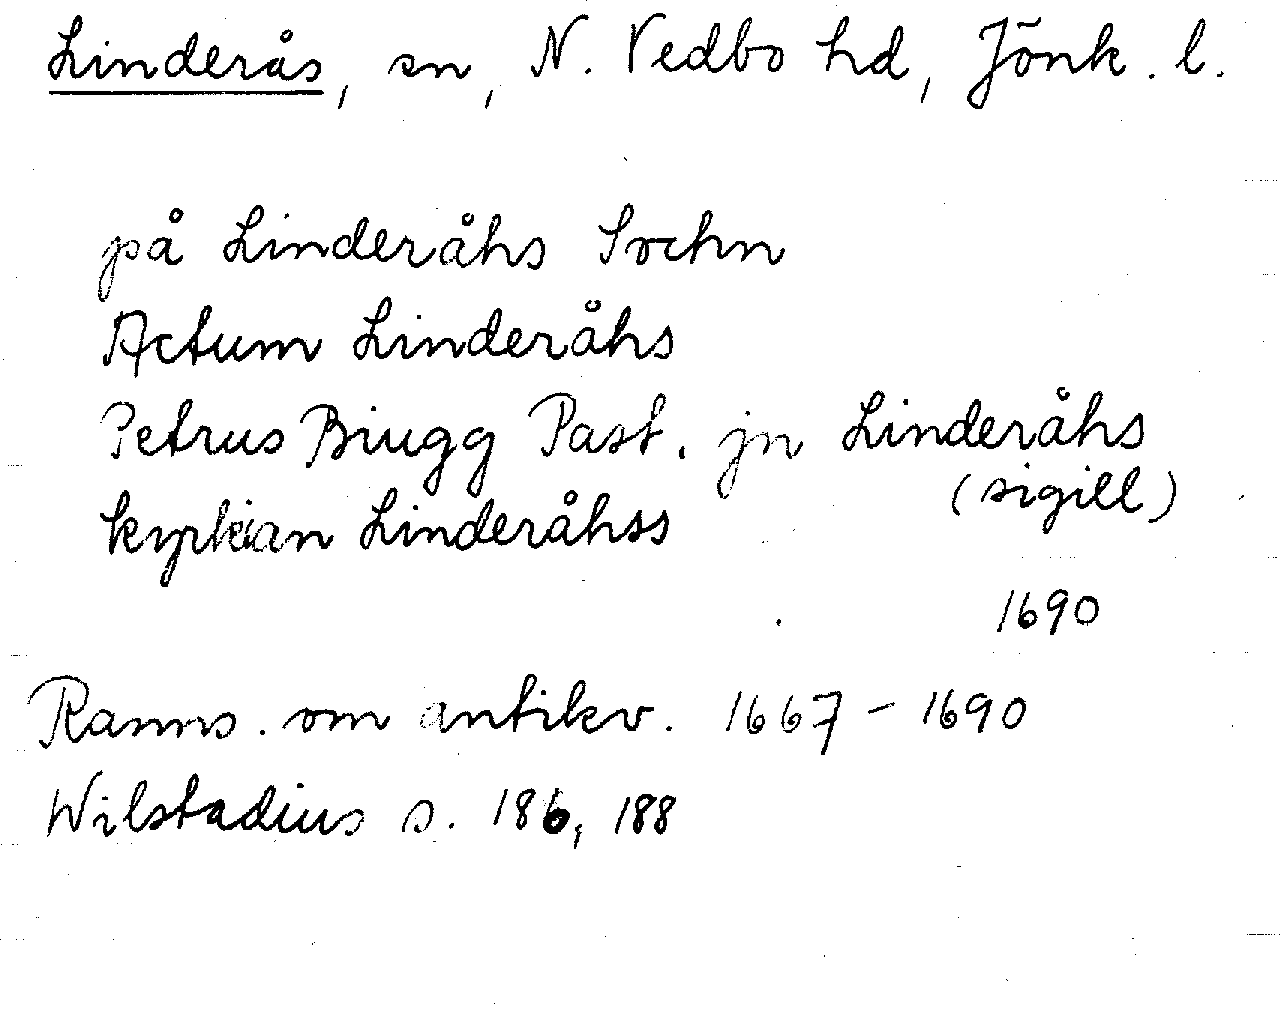 Linderås, sn, N. Vedbo hd, Jönk. l.
på Linderåhs Sochn
Actum Linderåhs
Petrus Biugg Past. jn Linderåhs
(sigill)
kyrkian Linderåhss
1690
Ranns. om antikv. 1667-1690
Wilstadius s. 186, 188